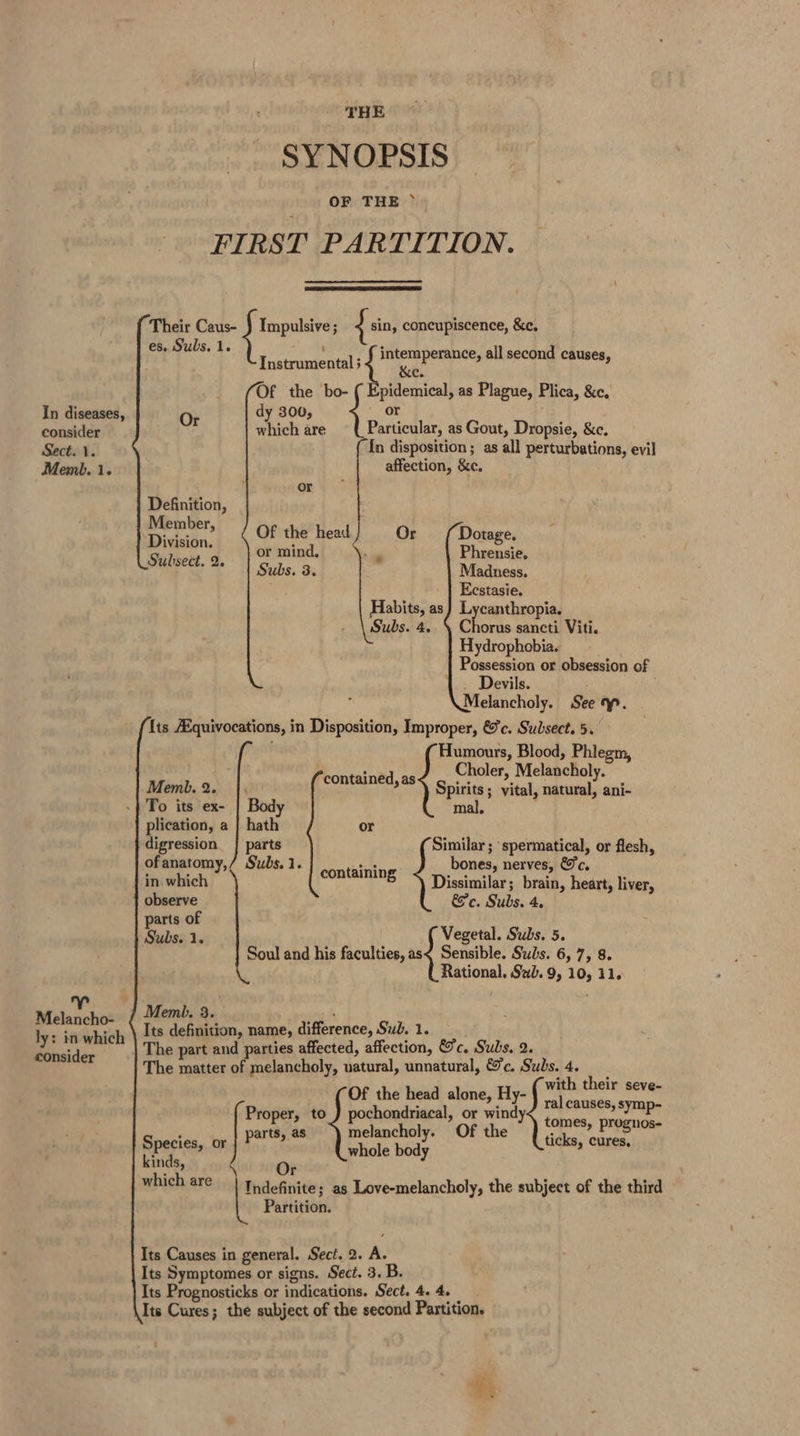 THE
SYNOPSIS
OF THE
FIRST PARTITION.
In diseases,
consider
Sect. 1.
Memb. 1.
Their Caus-
es. Subs. 1.
Impulsive;
sin, concupiscence, &c.
Instrumental;
intemperance, all second causes,
&c.
Or
Definition,
Member,
Division.
Subsect. 2.
Of the bo-
dy 300,
which are
Epidemical, as Plague, Plica, &c.
or
Particular, as Gout, Dropsie, &c.
or
Of the head
or mind.
Subs. 3.
In disposition; as all perturbations, evil
affection, &c.
Or
Habits, as
Subs. 4.
Dotage.
Phrensie.
Madness.
Ecstasie.
Lycanthropia.
Chorus sancti Viti.
Hydrophobia.
Possession or obsession of
Devils.
Melancholy. See ♈.
♈
Melancho-
ly: in which
consider
Its Æquivocations, in Disposition, Improper, &c. Subsect. 5.
Memb. 2.
To its ex-
plication, a
digression
of anatomy,
in which
observe
parts of
Subs. 1.
Body
hath
parts
Subs. 1.
contained, as
Humours, Blood, Phlegm,
Choler, Melancholy.
Spirits; vital, natural, ani-
mal.
or
containing
Similar; spermatical, or flesh,
bones, nerves, &c.
Dissimilar; brain, heart, liver,
&c. Subs. 4.
Soul and his faculties, as
Vegetal. Subs. 5.
Sensible. Subs. 6, 7, 8.
Rational. Sub. 9, 10, 11.
Memb. 3.
Its definition, name, difference, Sub. 1.
The part and parties affected, affection, &c. Subs. 2.
The matter of melancholy, natural, unnatural, &c. Subs. 4.
Species, or
kinds,
which are
Proper, to
parts, as
Of the head alone, Hy-
pochondriacal, or windy
melancholy. Of the
whole body
with their seve-
ral causes, symp-
tomes, prognos-
ticks, cures.
Or
Indefinite; as Love-melancholy, the subject of the third
Partition.
Its Causes in general. Sect. 2. A.
Its Symptomes or signs. Sect. 3. B.
Its Prognosticks or indications. Sect. 4. 4.
Its Cures; the subject of the second Partition.